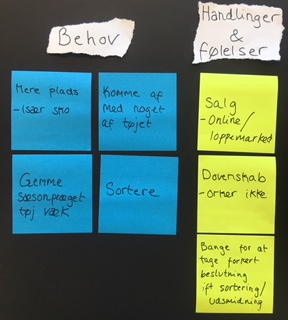 Behov
Mere plads
- Især sko
Komme af
med noget
af tøjet
Gemme
Sæsonpræget
tøj væk
Sortere
Handlinger
&
følelser
Salg
- Online/
loppemarked
Dovenskab
- Orker ikke
Bange for at
tage forkert
beslutning
ift sortering/
udsmidning